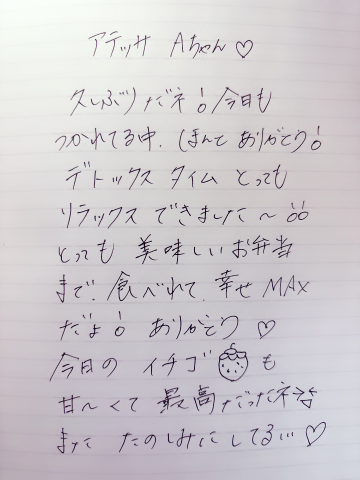 アテッサ Aちゃん♡
久しぶりだネ! 今日も
つかれてる中、ほんとありがとう!
デトックス タイム とっても
リラックス できました〜!!
とっても 美味しいお弁当
まで、食べれて、幸せ MAX
だよ! ありがとう ♡
今日の イチゴ🍓も
甘〜くて 最高だったネ
また たのしみに してる…♡